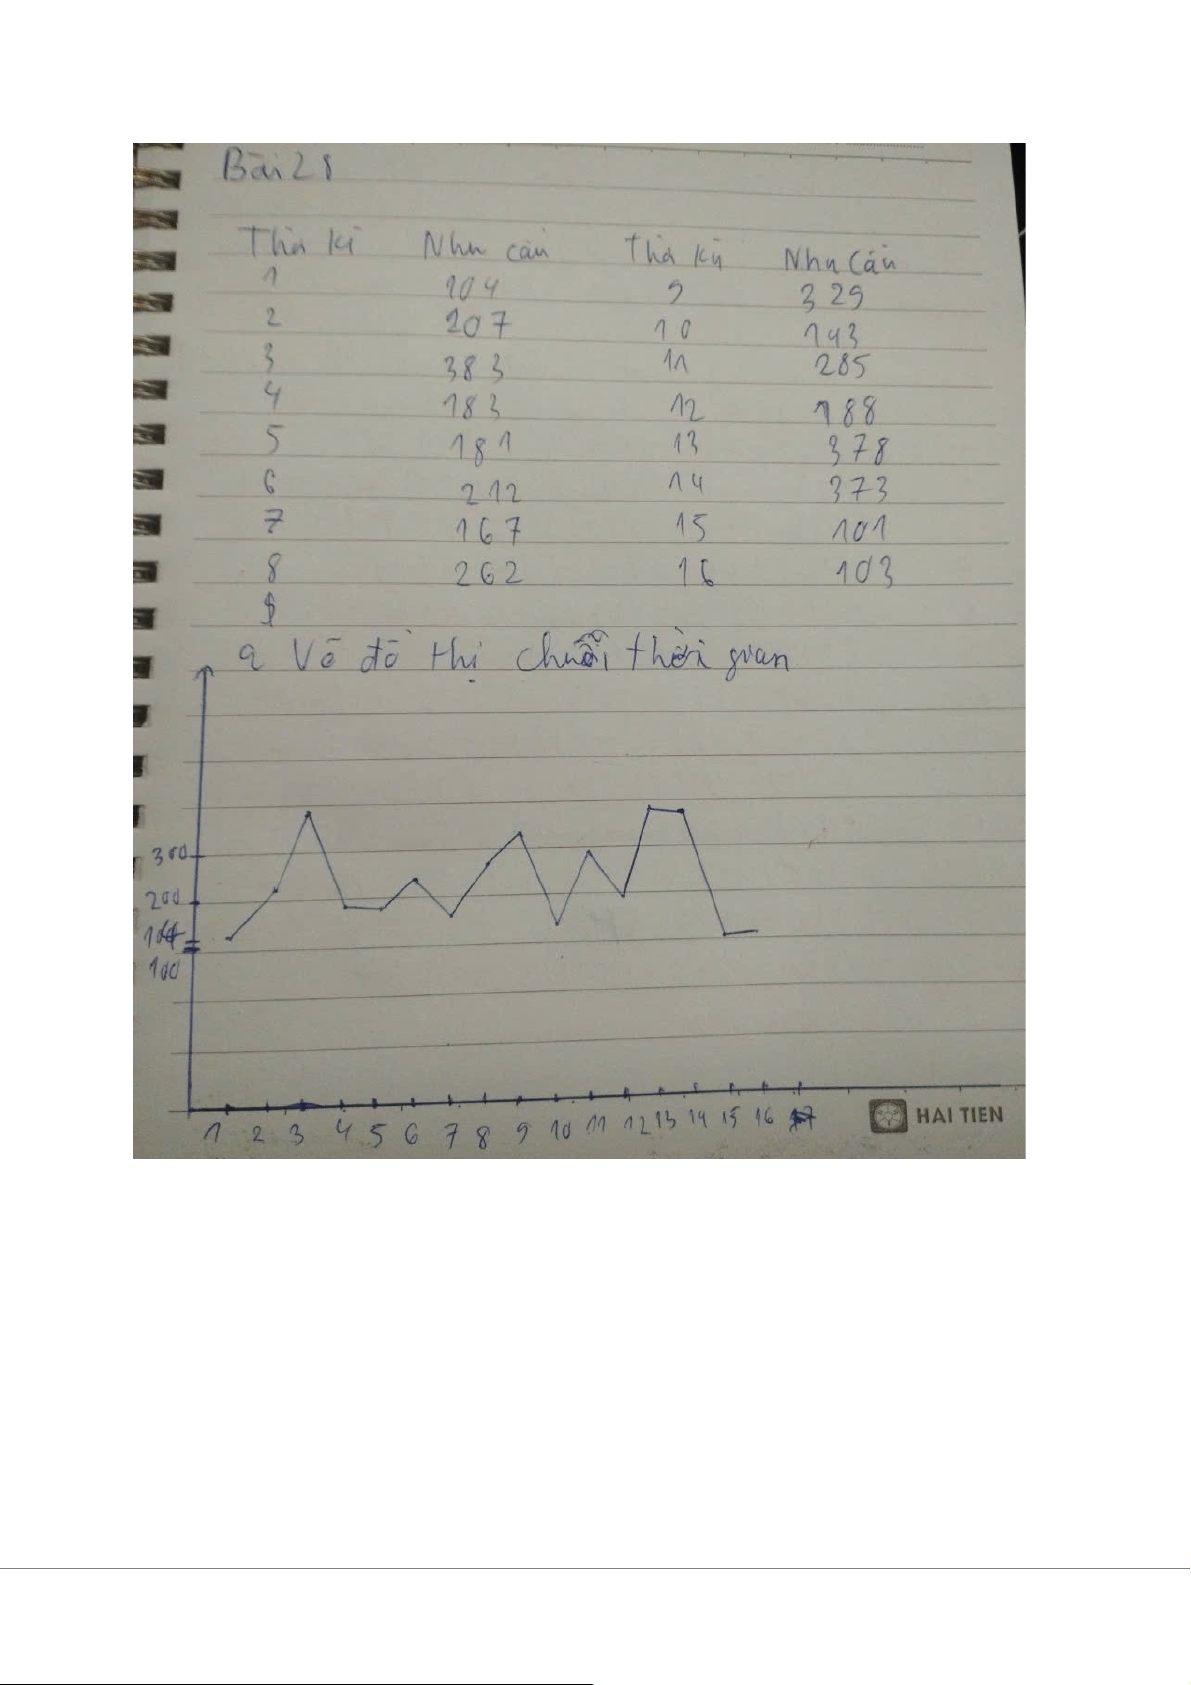 Bài 28
Thời kì Nhu cầu Thời kì Nhu Cầu
1 104 9 329
2 207 10 143
3 383 11 285
4 183 12 188
5 181 13 378
6 212 14 373
7 167 15 101
8 262 16 103
a Vẽ đồ thị chuỗi thời gian
300
200
104
100
1 2 3 4 5 6 7 8 9 10 11 12 13 14 15 16 17
HAI TIEN